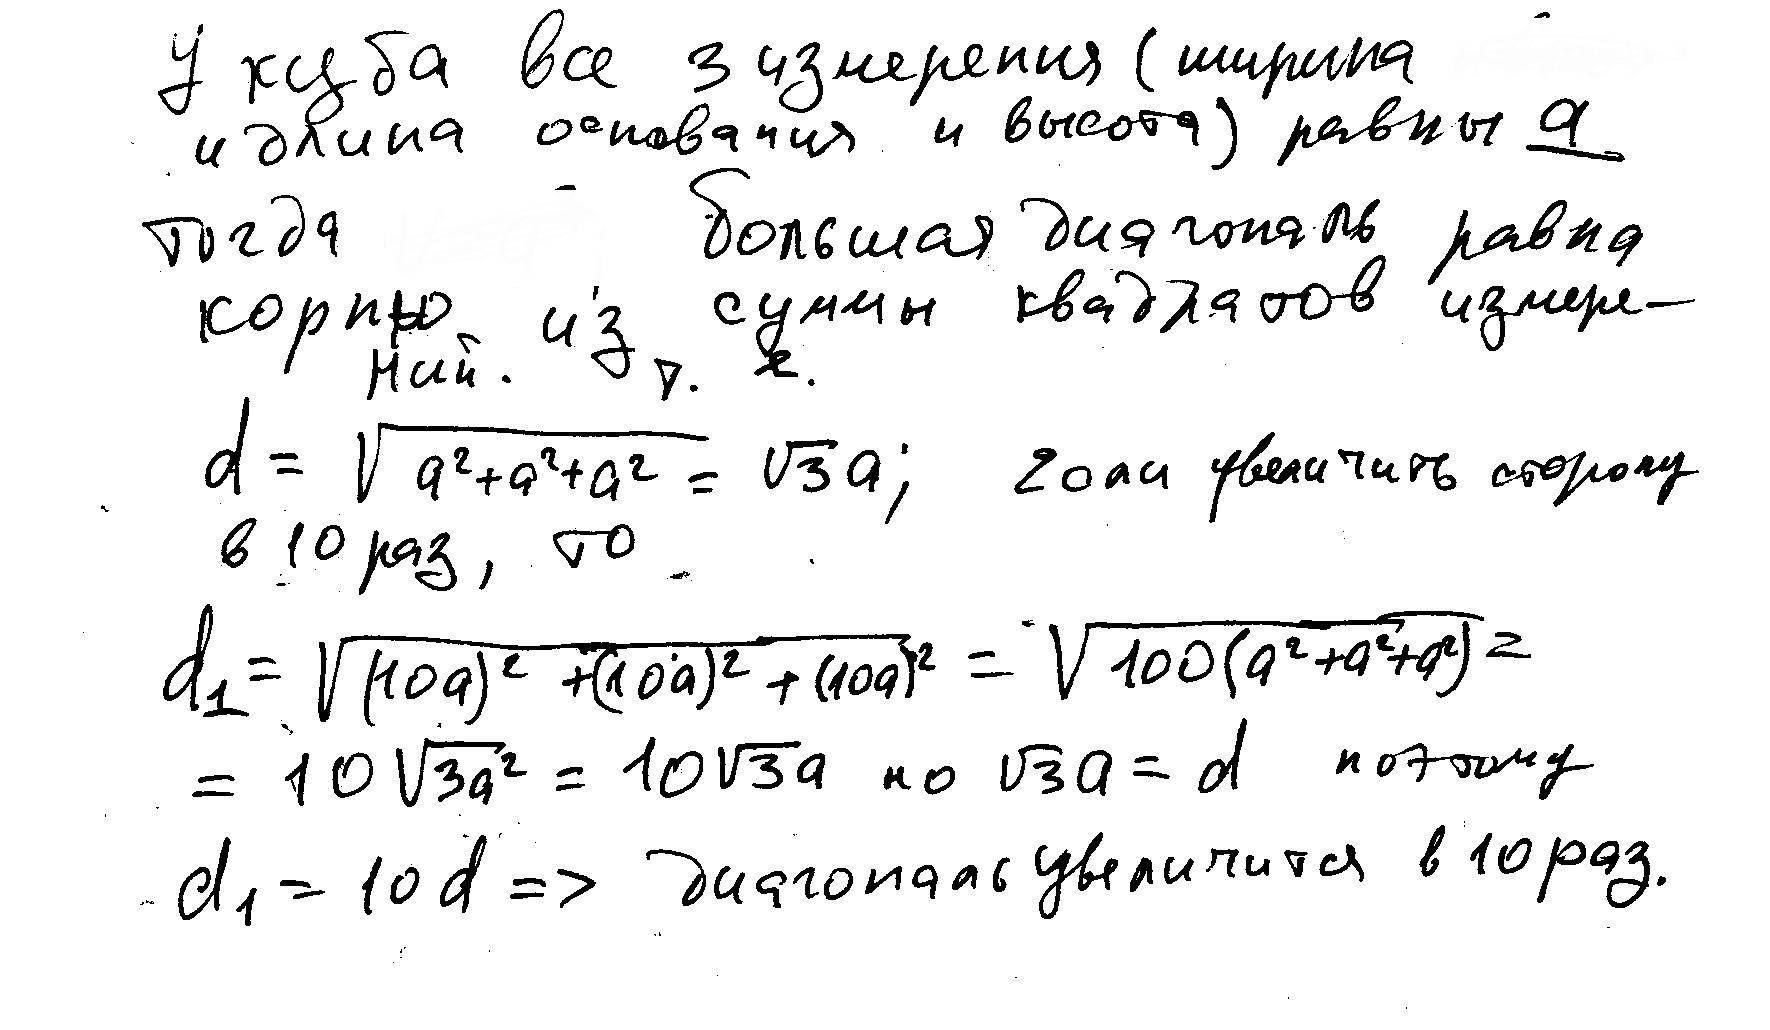 У куба все 3 измерения (ширина
и длина основания и высота) равны a
тогда большая диагональ равна
корню из суммы квадратов измере-
ний. т. е.
d = √(a²+a²+a²) = √3a; если увеличить сторону
в 10 раз, то
d₁ = √((10a)² + (10a)² + (10a)²) = √(100(a²+a²+a²)) =
= 10√(3a²) = 10√3a но √3a = d поэтому
d₁ = 10d => диагональ увеличится в 10 раз.